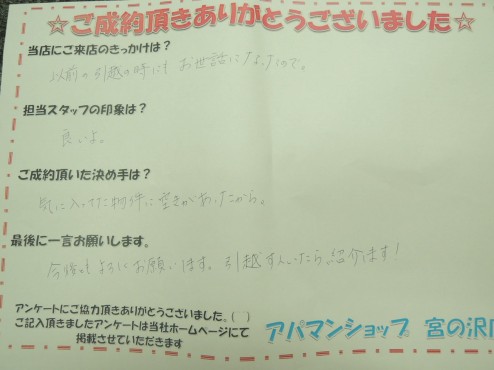 ☆ご成約頂きありがとうございました☆
当店にご来店のきっかけは？
以前の引越の時にもお世話になったので。
担当スタッフの印象は？
良いよ。
ご成約頂いた決め手は？
気に入ってた物件に空きがあったから。
最後に一言お願いします。
今後もよろしくお願いします。引越す人いたら紹介します！
アンケートにご協力頂きありがとうございました。(　)
ご記入頂きましたアンケートは当社ホームページにて
掲載させていただきます
アパマンショップ 宮の沢